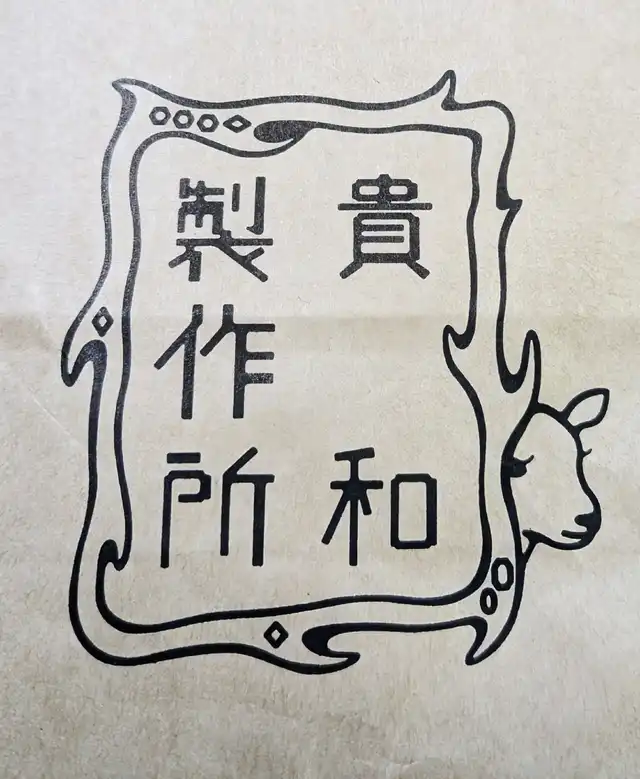 貴和
製作所